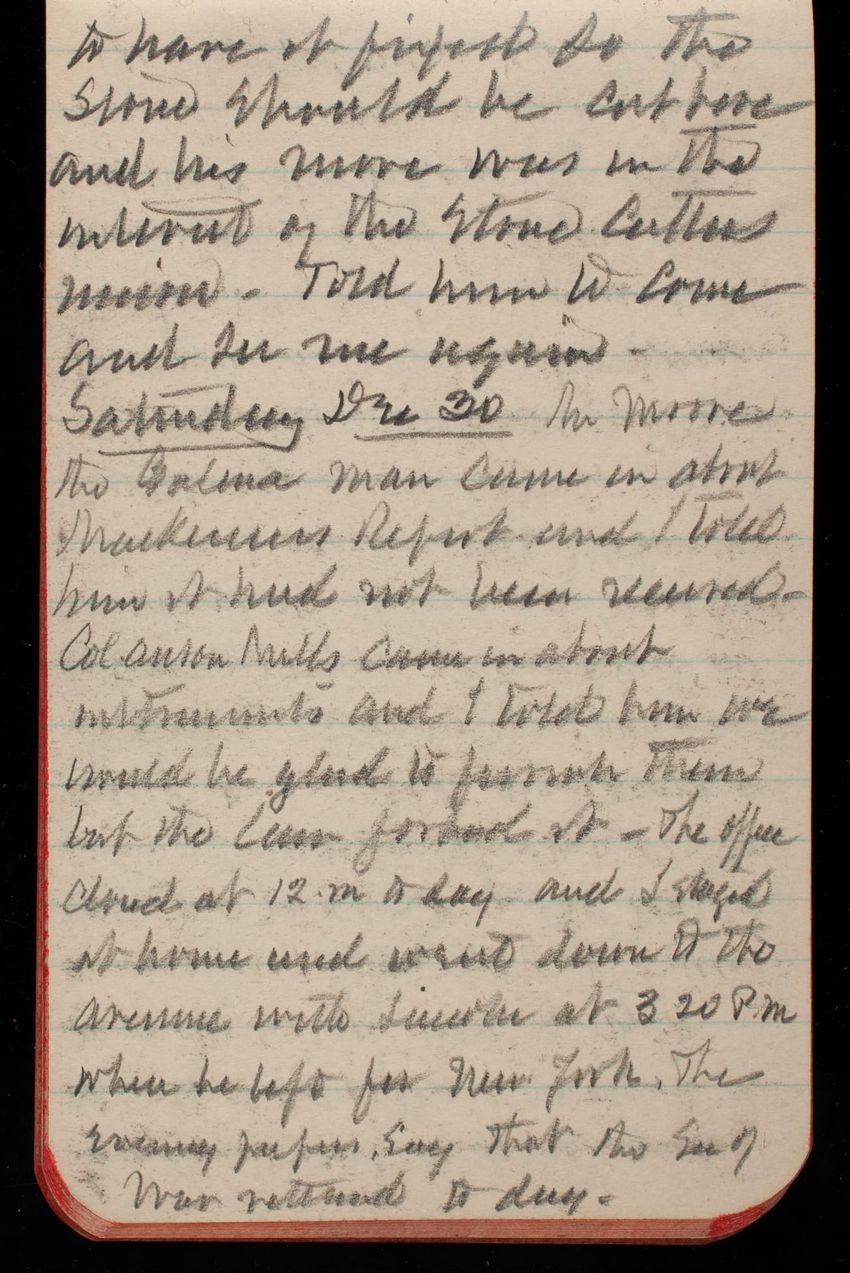 to have it fixed so the
Stone should be cut here
and his move was in the
interest of the Stone Cutters
union - Told him to come
and see me again -
Saturday Dec 30 Mr Moore
the Galena man came in about
Mackenzies Report and I told
him it had not been received -
Col Anson Mills came in about
instruments and I told him we
would be glad to furnish them
but the Law forbid it - The office
closed at 12 m to day and I stayed
at home and went down to the
Avenue with Lincoln at 3 20 P.m
when he left for New York. The
evening papers say that the Sec of
War returned to day.